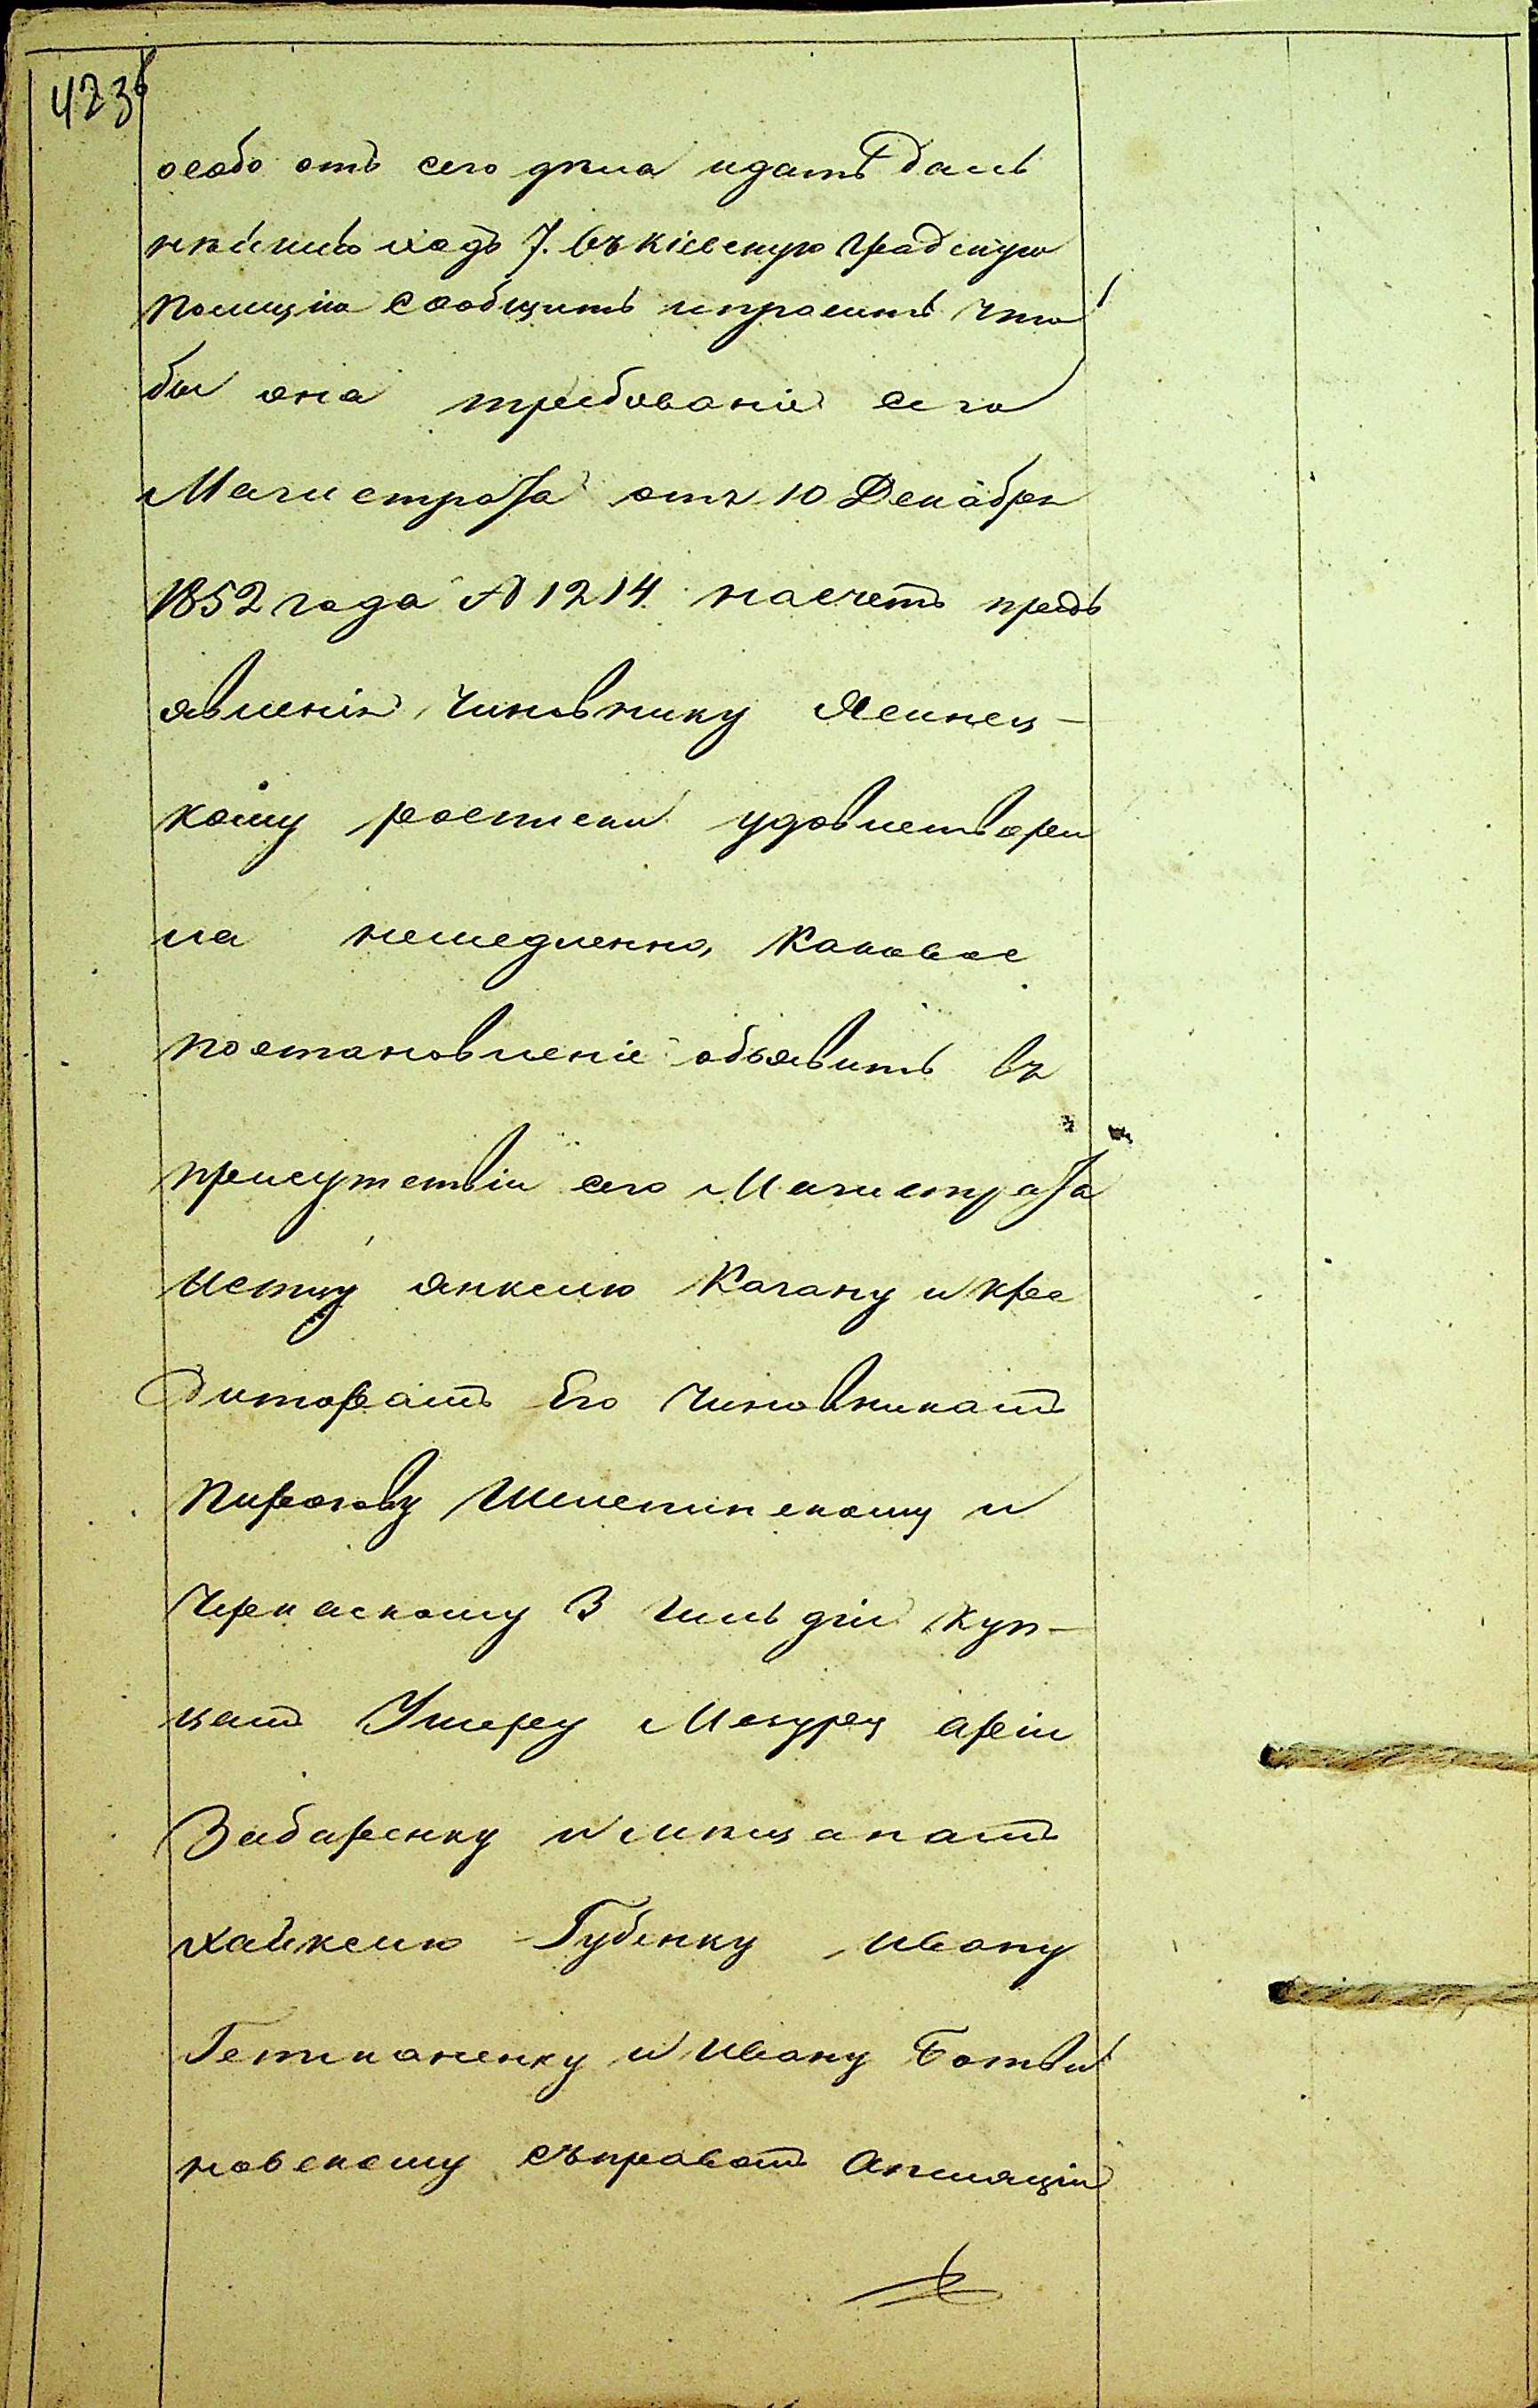 423б
особо отъ сего дѣла и дать даль
нѣйшій ходъ 7. въ Кіевскую Градскую
Полицію сообщить и просить что
бы она требованіе сего
Магистрата отъ 10 Декабря
1852 года № 1214 насчетъ предъ
явленія чиновнику Яснец-
кому росписки удовлетвори
ла немедленно, каковое
постановленіе объявить въ
присутствіи сего Магистрата
истцу Янкелю Кагану и кре
диторамъ Его Чиновникамъ
Пирогову и
Черкаскому 3 Гильдіи куп-
цамъ Ушеру Мазуру Аріи
Забаренку и мѣщанамъ
Хайкелю Губенку Ивану
Гетманенку и Ивану Ботви
новскому съ правомъ Апеляціи